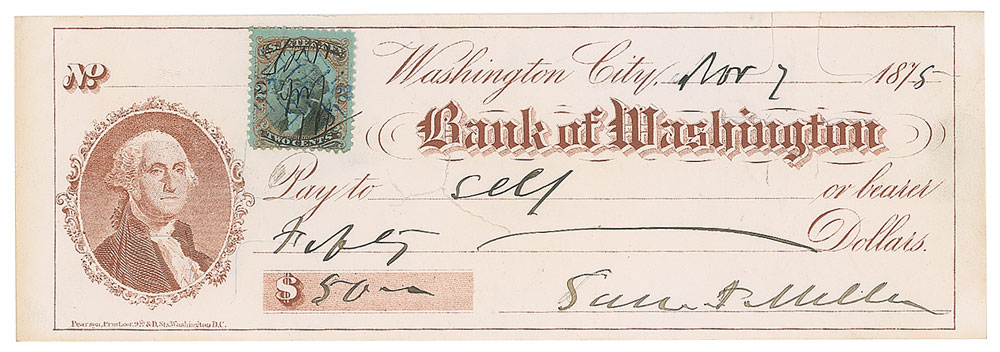 No
Washington City, Nov 7 1875
Bank of Washington
Pay to self or bearer
Fifty Dollars.
$ 50
Saml F. Miller
TWO CENTS
Pearson, Printer, 9th & D. Sts. Washington D.C.